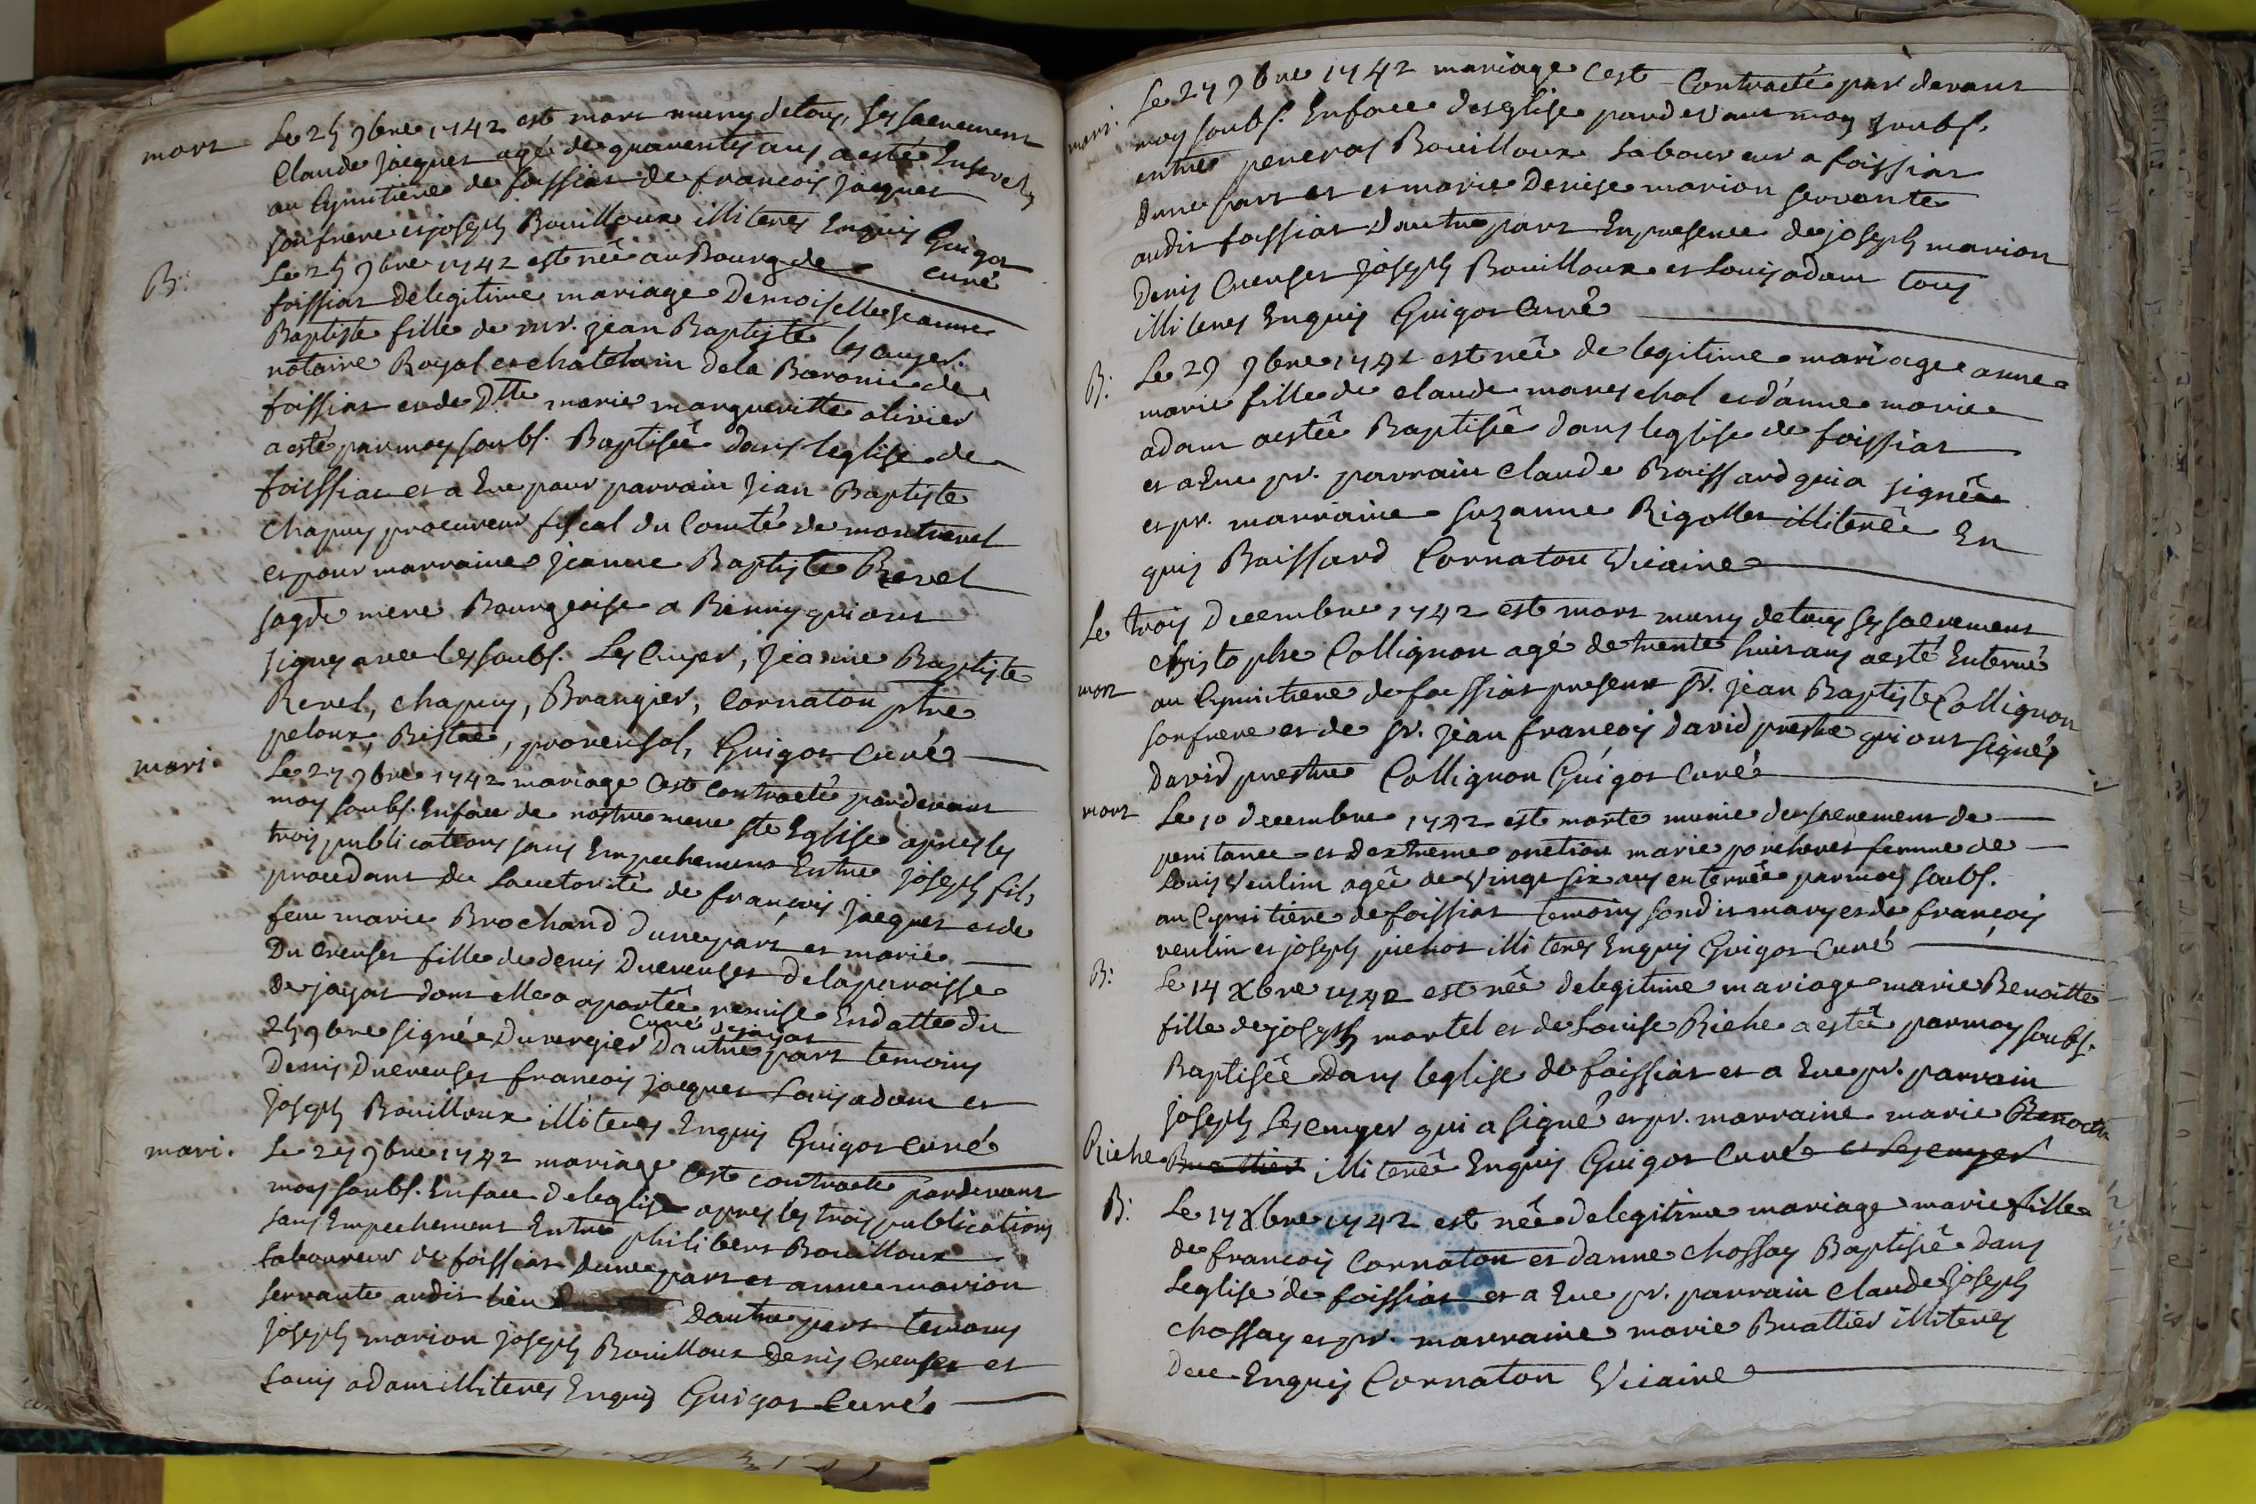 mort Le 25 9bre 1742 est mort muny de tous ses sacrement
Claude jacquet agé de quarentes ans a esté Ensevely
au Cymitiere de foissiat de francois jacquet
son frere et joseph Bouilloux illiteres Enquis Guigot
curé
B: Le 25 9bre 1742 est née au Bourg de
foissiat de legitime mariage Demoiselle jeanne
Baptiste fille de mr. jean Baptiste lescuyer
notaire Royal et chatelain de la Baronie de
foissiat et de Dtte marie margueritte olivier
a esté par moy soubs. Baptisée dans leglise de
foissiat et a Eue pour parrain jean Baptiste
Chapuy procureur fiscal du Comté de montrevel
et pour marraine jeanne Baptiste Revel
sa gde mere Bourgeoise a Bienny qui ont
signes avec les soubs. Lescuyer, jeanne Baptiste
Revel, chapuy, Brangier, Cornaton ptre
peloux, Bistaé, provensal, Guigot curé
mari. Le 27 9bre 1742 mariage cest contracté pardevant
moy soubs. En face de nostre mere ste Eglise apres les
trois publications sans Empechement Entre joseph fils
procedant de Lautorité de françois jacquet et de
feue marie Brochand dune part et marie
Ducreuset fille de denis Ducreuset de la parroisse
de jayat dont elle a aportée remise En datte du
25 9bre signée Duvergier curé de jayat Dautre part temoins
Denis Ducreuset francois jacquet Louis adam et
joseph Bouilloux illiteres Enquis Guigot curé
mari. Le 27 9bre 1742 mariage cest contracté pardevant
moy soubs. En face de leglise apres les trois publications
sans Empechement Entre philibert Bouilloux
Laboureur de foissiat dune part et anne marion
servante audit lieu Dautre part temoins
joseph marion joseph Bouilloux denis Creuset et
Louis adam illiteres Enquis Guigot Curé
mari. Le 27 9bre 1742 mariage cest Contracté par devant
moy soubs. En face desglise pardevant moy soubs.
entre peneras Bouilloux Laboureur a foissiat
dune part et et marie Denise marion servante
audit foissiat dautre part En presence de joseph marion
Denis Creuset joseph Bouilloux et Louis adam tous
illiteres Enquis Guigot Curé
B: Le 29 9bre 1742 est née de legitime mariage anne
marie fille de claude mareschal et d'anne marie
adam a estée Baptisée dans leglise de foissiat
et a Eue pr. parrain Claude Boissard qui a signée
et pr. marraine suzanne Rigollet illiterée En
quis Boissard Cornaton Vicaire
Le trois Decembre 1742 est mort muny de tous ses sacrement
christophe Collignon agé de trente huit ans a esté Enterré
mort au Cymitiere de foissiat present sr. jean Baptiste Collignon
son frere et de sr. jean francois David prestre qui ont signés
David prestre Collignon Guigot curé
mort Le 10 decembre 1742 est morte munie de sacrement de
penitance et dextreme onction marie porcheret femme de
Louis Veulin agée de vingt six ans enterrée par moy soubs.
au Cymitiere de foissiat temoins sondit mary et de françois
veulin et joseph pichot illiteres Enquis Guigot Curé
B: Le 14 Xbre 1742 est née de legitime mariage marie Benoitte
fille de joseph martel et de Louise Riche a estée par moy soubs.
Baptisée Dans leglise de foissiat et a Eue pr. parrain
joseph Lescuyer qui a signé et pr. marraine marie Benoitte
Riche Buattier illiterée Enquis Guigot Curé et Lescuyer
B: Le 17 Xbre 1742 est née de legitime mariage marie fille
de francois Cornaton et danne chossay Baptisée dans
Leglise de foissiat et a Eue pr. parrain Claude joseph
chossay et pr. marraine marie Buattier illiteres
dece Enquis Cornaton Vicaire